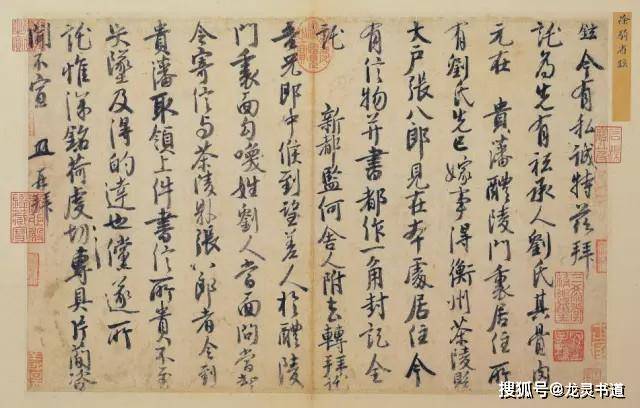 徐騎省鉉
鉉今有私誠特茲拜
託為先有祗承人劉氏其骨肉
元在 貴藩醴陵門裏居住所
有劉氏先已嫁事得衡州茶陵縣
大戶張八郎見在本處居住今
有信物并書都作一角封記全
託 新都監何舍人附去轉拜託
吾兄郎中候到望差人於醴陵
門裏面勾喚姓劉人當面問當却
令寄信与茶陵縣張八郎者令到
貴藩取領上件書信所貴不至
失墜及得的達也儻遂所
託惟深銘荷虔切專具片簡咨
聞不宣 再拜
搜狐号@龙灵书道